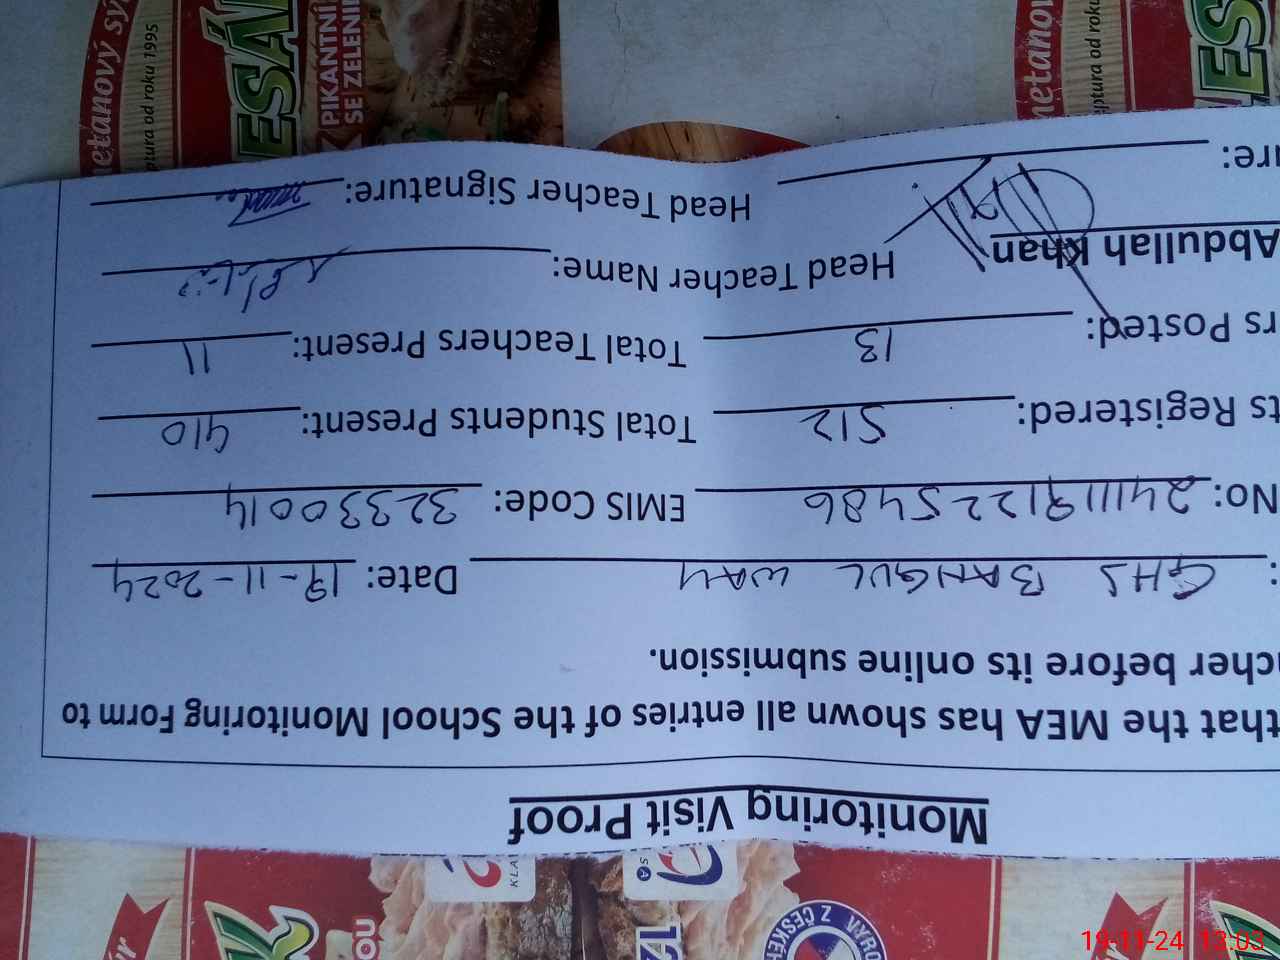 Monitoring Visit Proof
that the MEA has shown all entries of the School Monitoring Form to
cher before its online submission.
: GHS BANGUL WALY Date: 19-11-2024
No: 241119122 5486 EMIS Code: 32330014
ts Registered: 512 Total Students Present: 410
rs Posted: 13 Total Teachers Present: 11
Abdullah Khan Head Teacher Name:
ure: Head Teacher Signature:
metanový sý
ptura od roku 1995
ESÁ
PIKANTNÍ
SE ZELENI
metanov
ptura od roku
ES
KLA
SA
OU
Z ČESKÉH
19-11-24 12:03